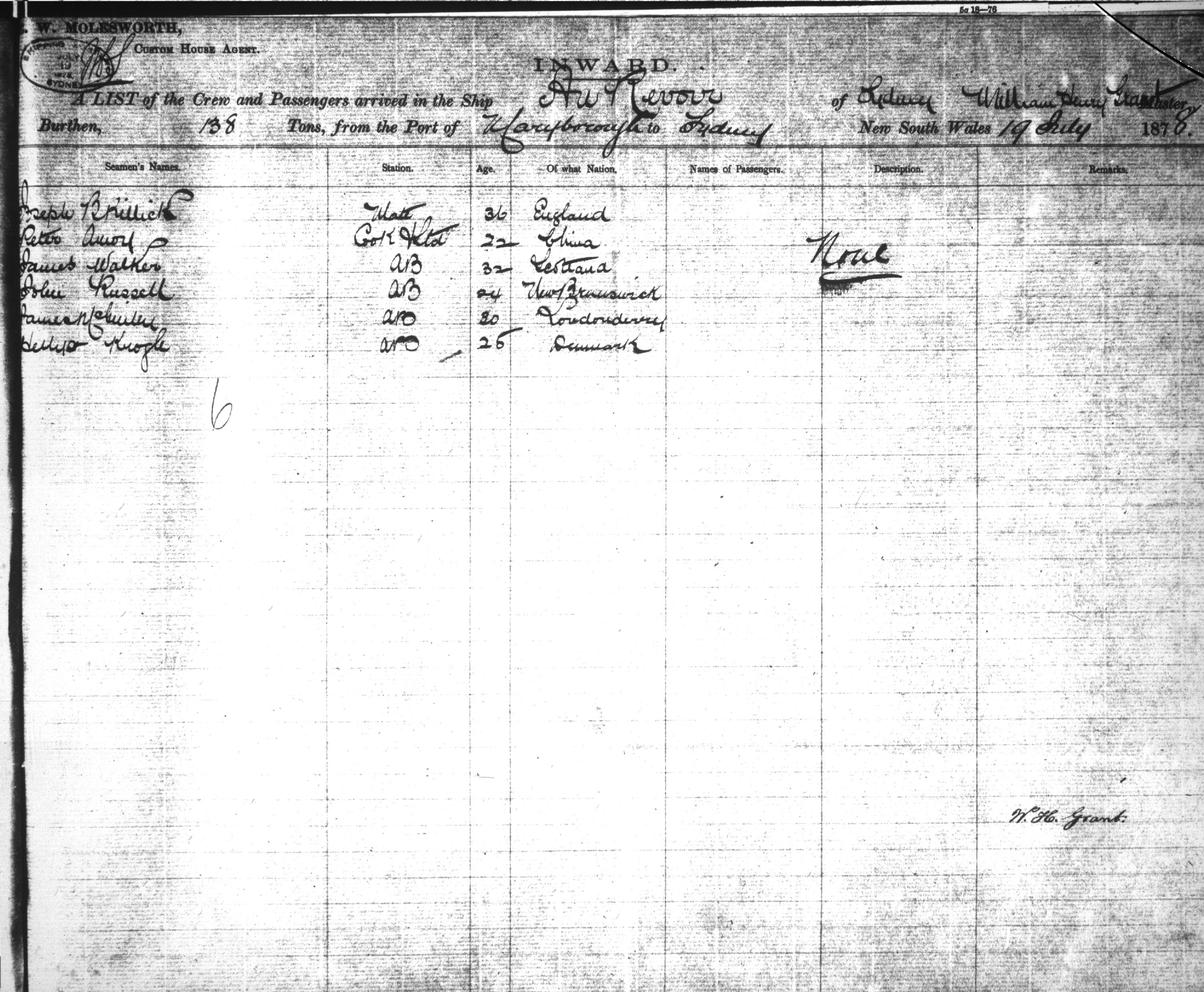 6a 18—76
. W. MOLESWORTH,
CUSTOM HOUSE AGENT.
SYDNEY
INWARD.
A LIST of the Crew and Passengers arrived in the Ship Au Revoir of Sydney William Henry Grant Master,
Burthen, 138 Tons, from the Port of Maryborough to Sydney New South Wales 19 July 1878
Seamen's Names. Station. Age. Of what Nation. Names of Passengers. Description. Remarks.
Joseph B Killick Mate 36 England
Peter Amoy Cook & Std 22 China
James Walker AB 32 Scotland
John Russell AB 24 New Brunswick
James AB Londonderry
Krogh AB 26 Denmark
None
6
W. H. Grant.